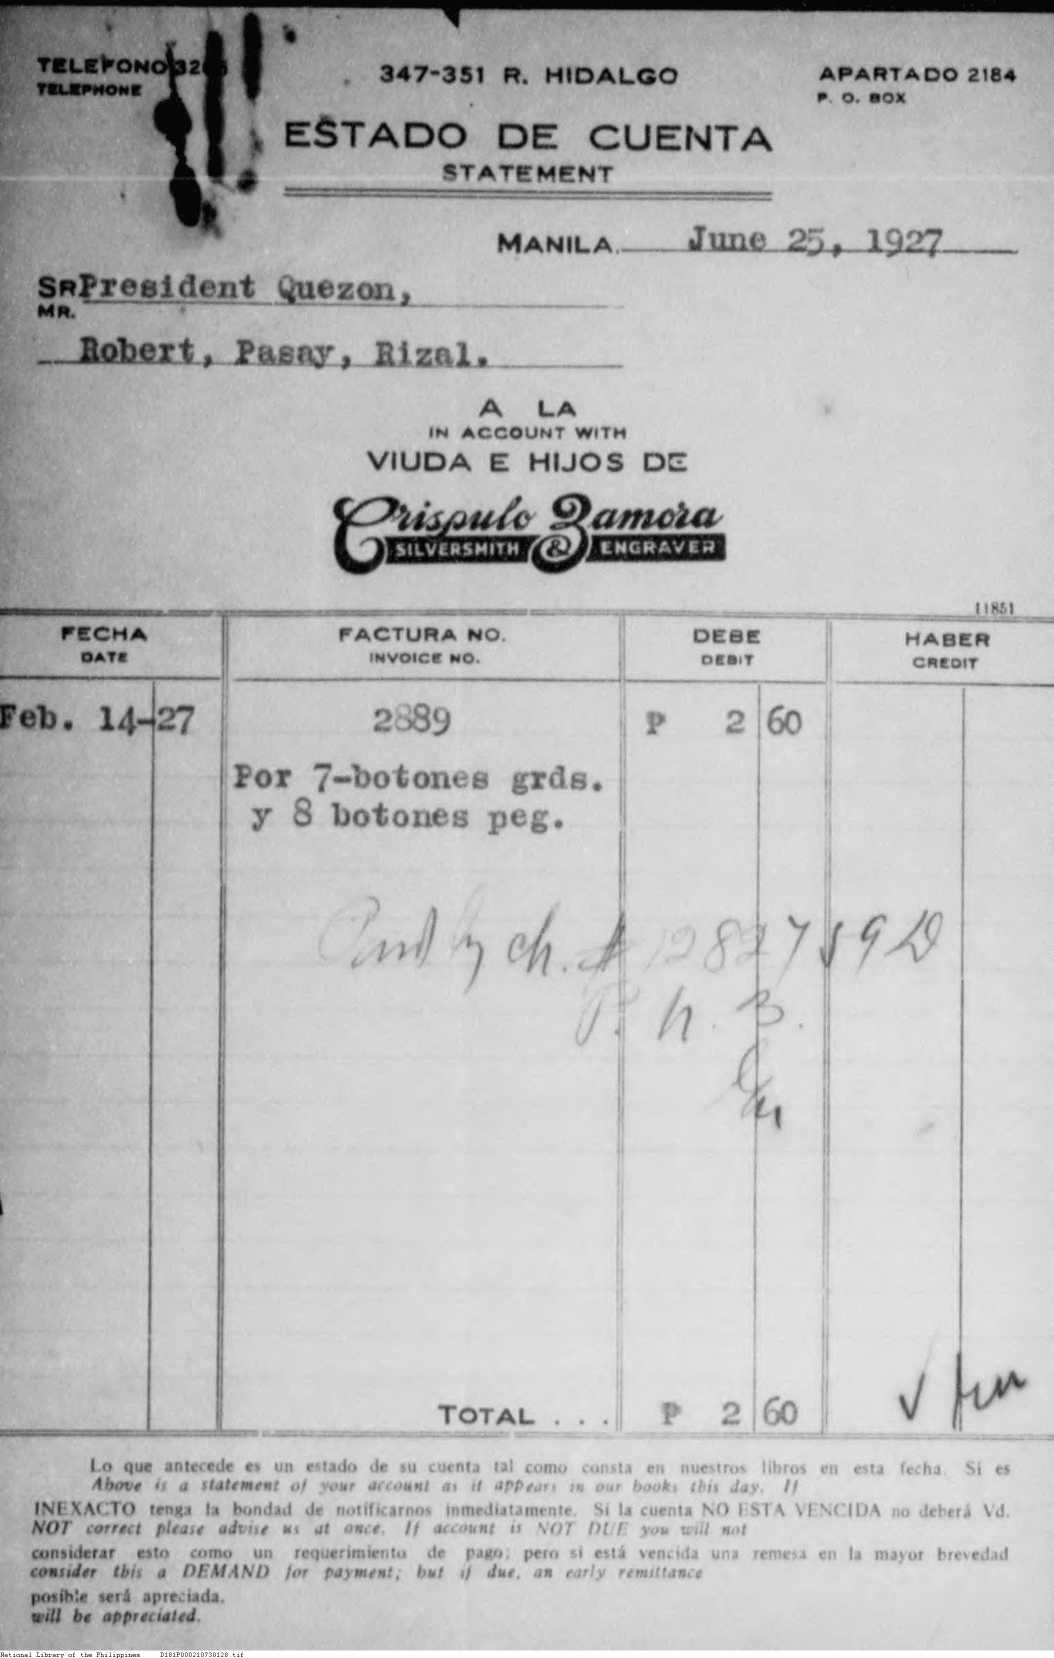 TELEFONO
TELEPHONE
347-351 R. HIDALGO
APARTADO 2184
P. O. BOX
ESTADO DE CUENTA
STATEMENT
MANILA. June 25, 1927
SR President Quezon,
MR.
Robert, Pasay, Rizal.
A LA
IN ACCOUNT WITH
VIUDA E HIJOS DE
Crispulo Zamora
SILVERSMITH & ENGRAVER
11851
FECHA FACTURA NO. DEBE HABER
DATE INVOICE NO. DEBIT CREDIT
Feb. 14-27 2889 P 2 60
Por 7-botones grds.
y 8 botones peg.
Paid by ch. # 12827
P. N. B.
TOTAL . . . P 2 60
Lo que antecede es un estado de su cuenta tal como consta en nuestros libros en esta fecha. Si es
Above is a statement of your account as it appears in our books this day. If
INEXACTO tenga la bondad de notificarnos inmediatamente. Si la cuenta NO ESTA VENCIDA no deberá Vd.
NOT correct please advise us at once. If account is NOT DUE you will not
considerar esto como un requerimiento de pago; pero si está vencida una remesa en la mayor brevedad
consider this a DEMAND for payment; but if due, an early remittance
posible será apreciada.
will be appreciated.
National Library of the Philippines D181P000210730128.tif